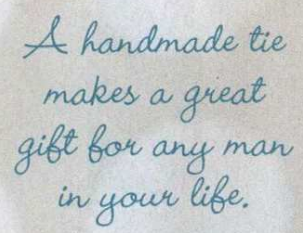 A handmade tie
makes a great
gift for any man
in your life.